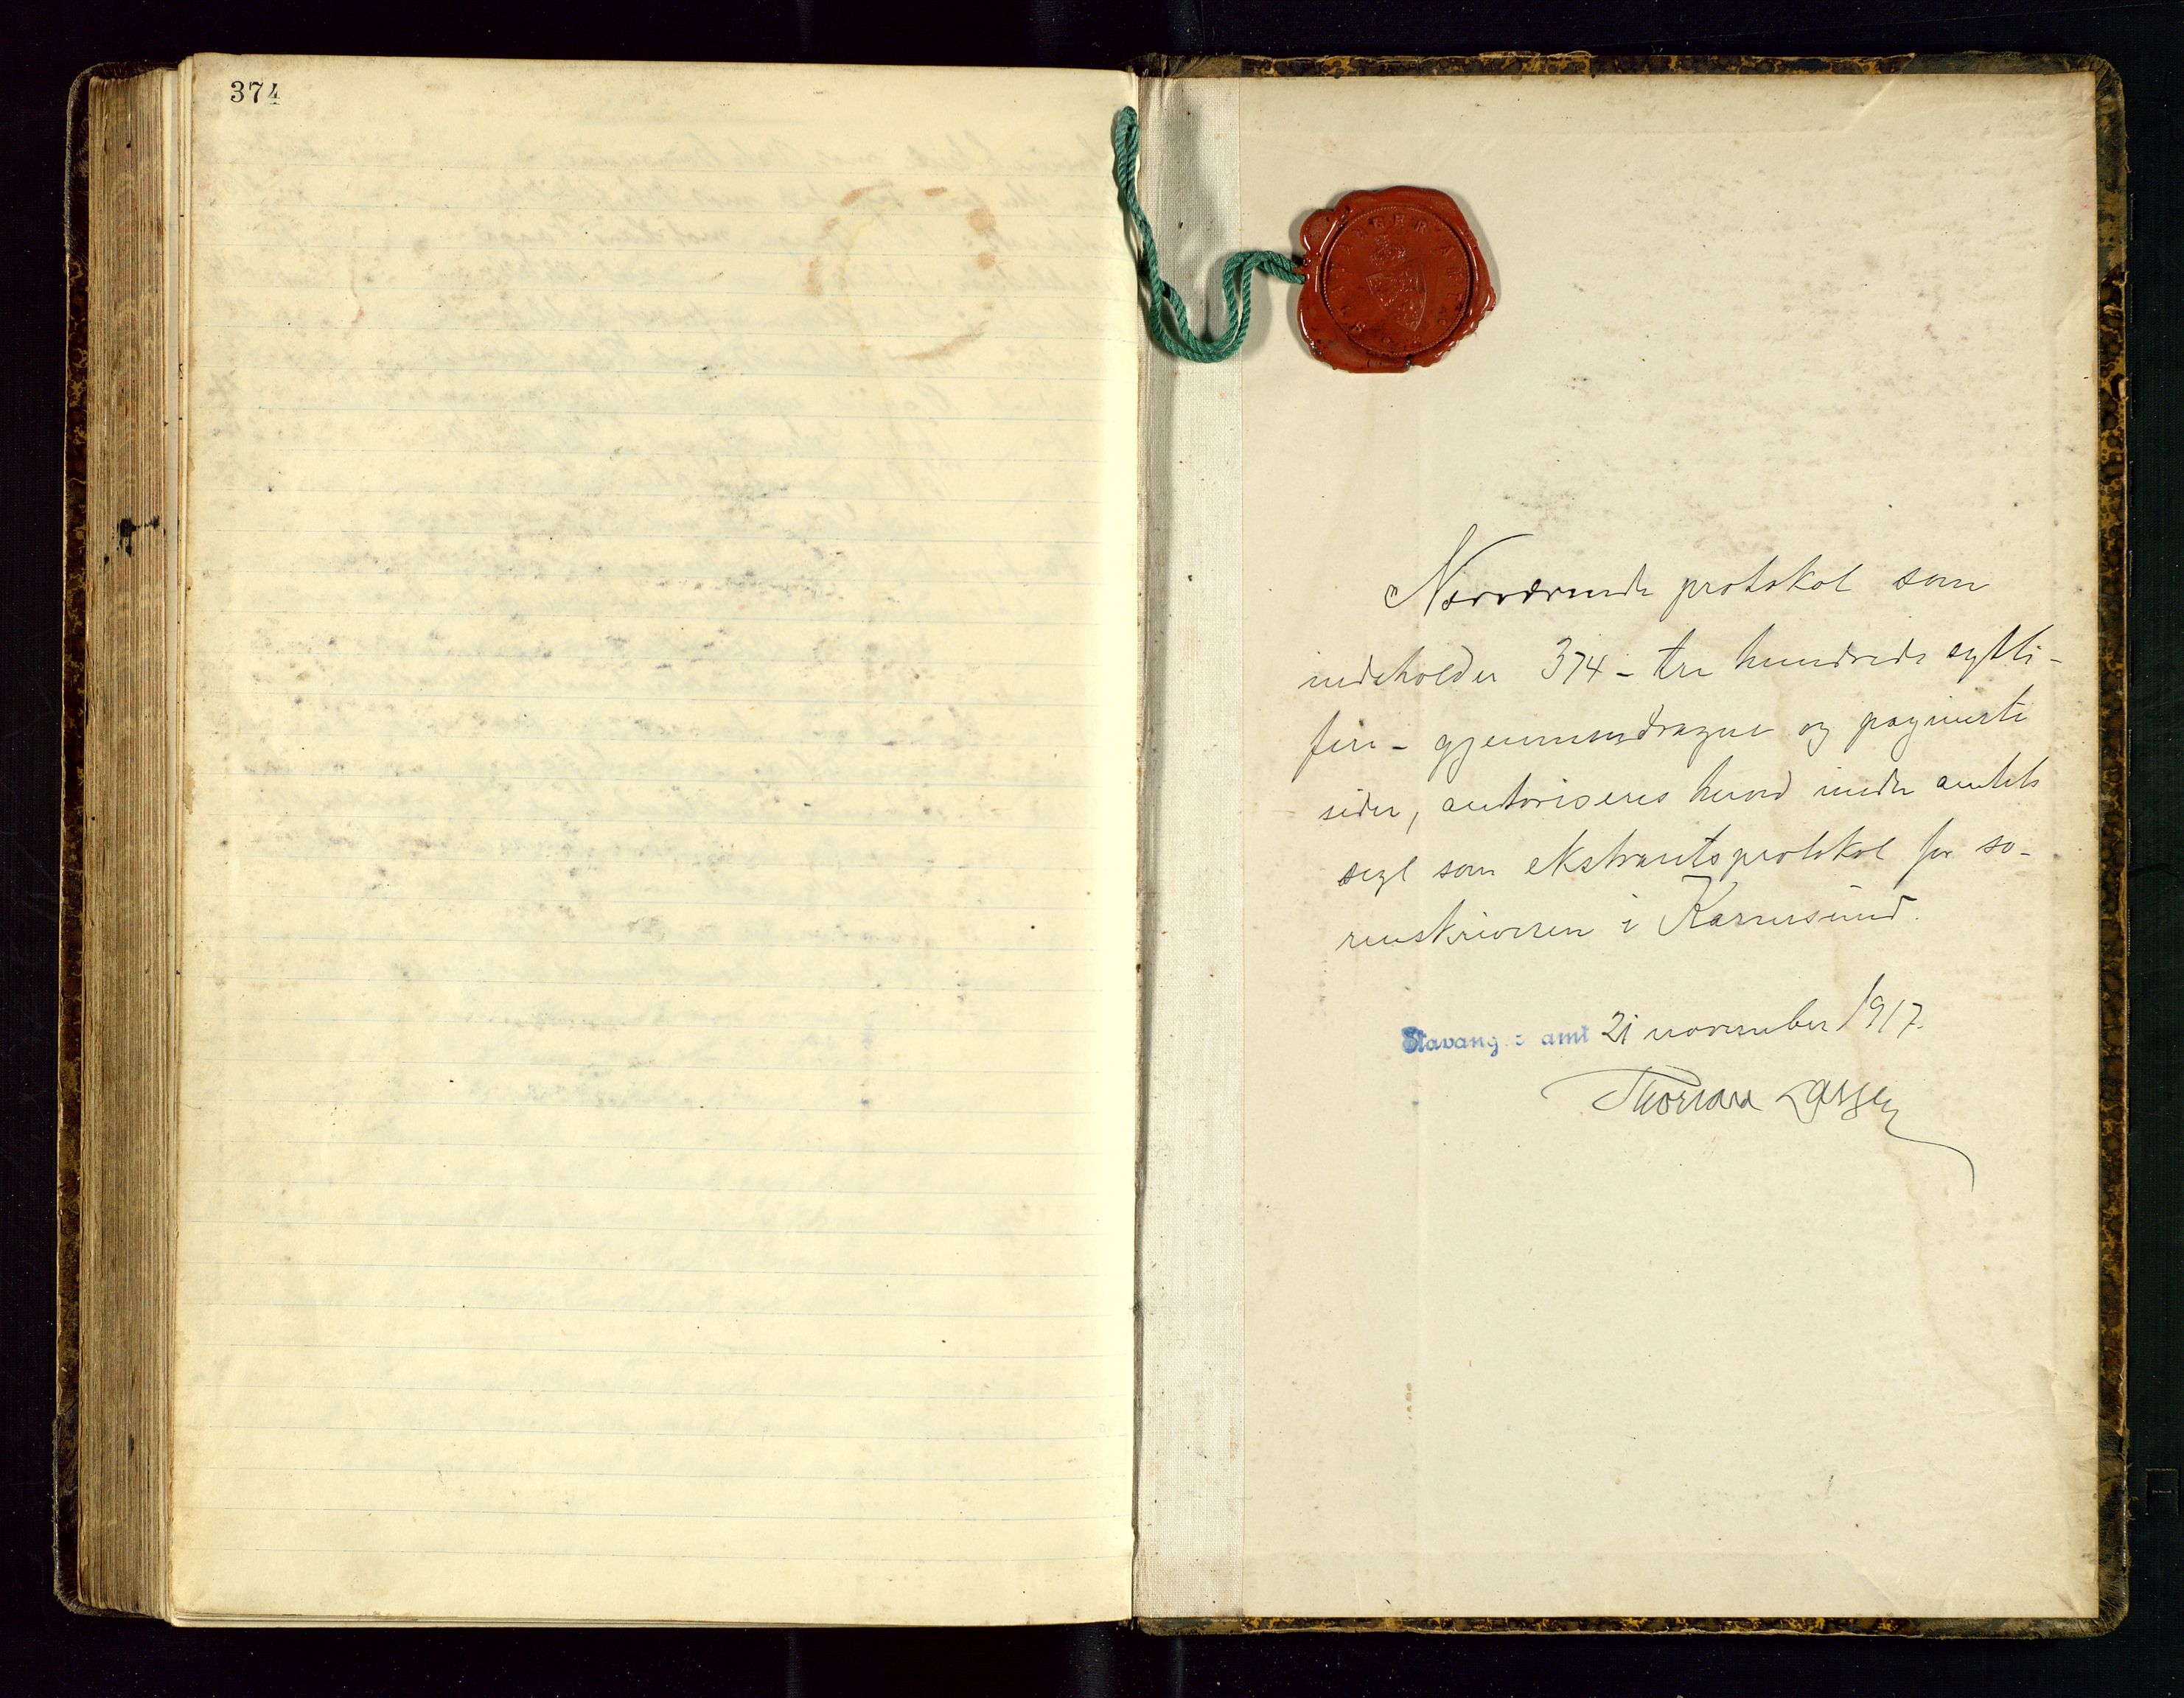 374
Nærværende protokol som
indeholder 374 - tre hundrede sytti-
fire - gjennemdragne og paginerte
sider, autoriseres herved under amtets
segl som ekstraretsprotokol for so-
renskriveren i Karmsund.
Stavanger amt 21 november 1917.
Thorvald Larsen